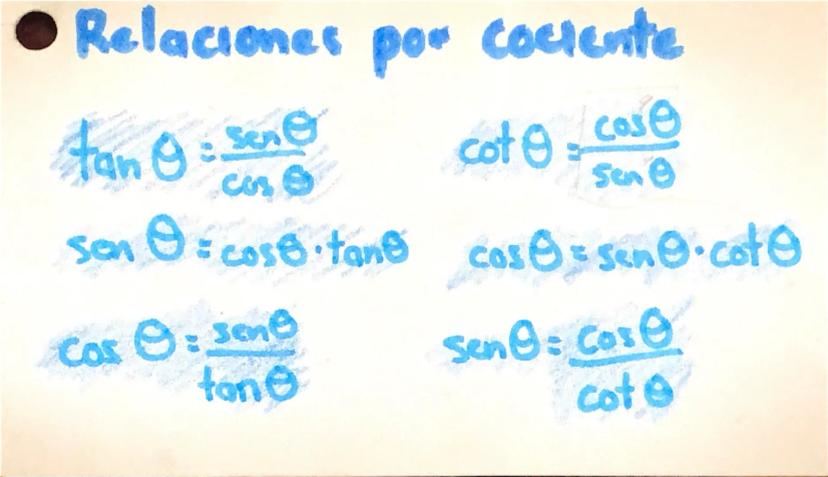 Relaciones por cociente
tan θ = senθ / cos θ
cot θ = cosθ / sen θ
sen θ = cosθ · tanθ
cosθ = senθ · cotθ
cos θ = senθ / tanθ
senθ = cosθ / cot θ